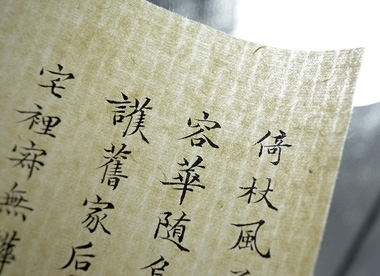 倚杖風
容華随
護舊家后
宅裡寂無